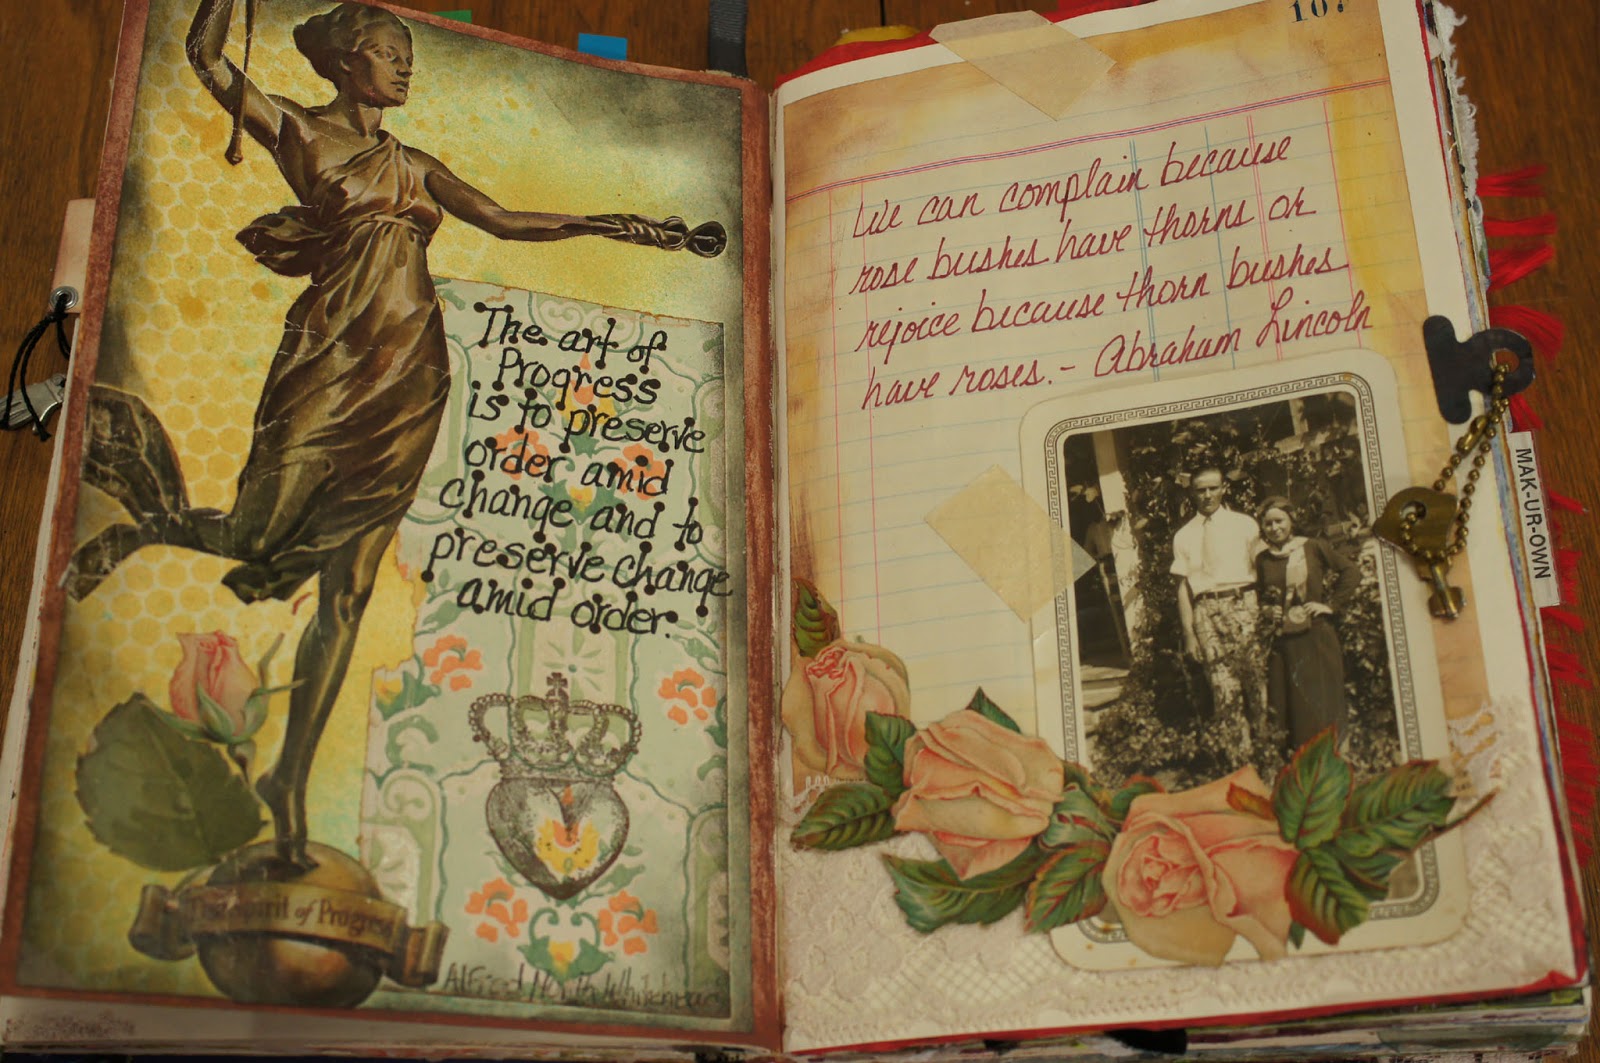 The art of
Progress
is to preserve
order amid
change and to
preserve change
amid order.
The Spirit of Progress
Alfred North Whitehead
107
We can complain because
rose bushes have thorns or
rejoice because thorn bushes
have roses. - Abraham Lincoln
MAK-UR-OWN